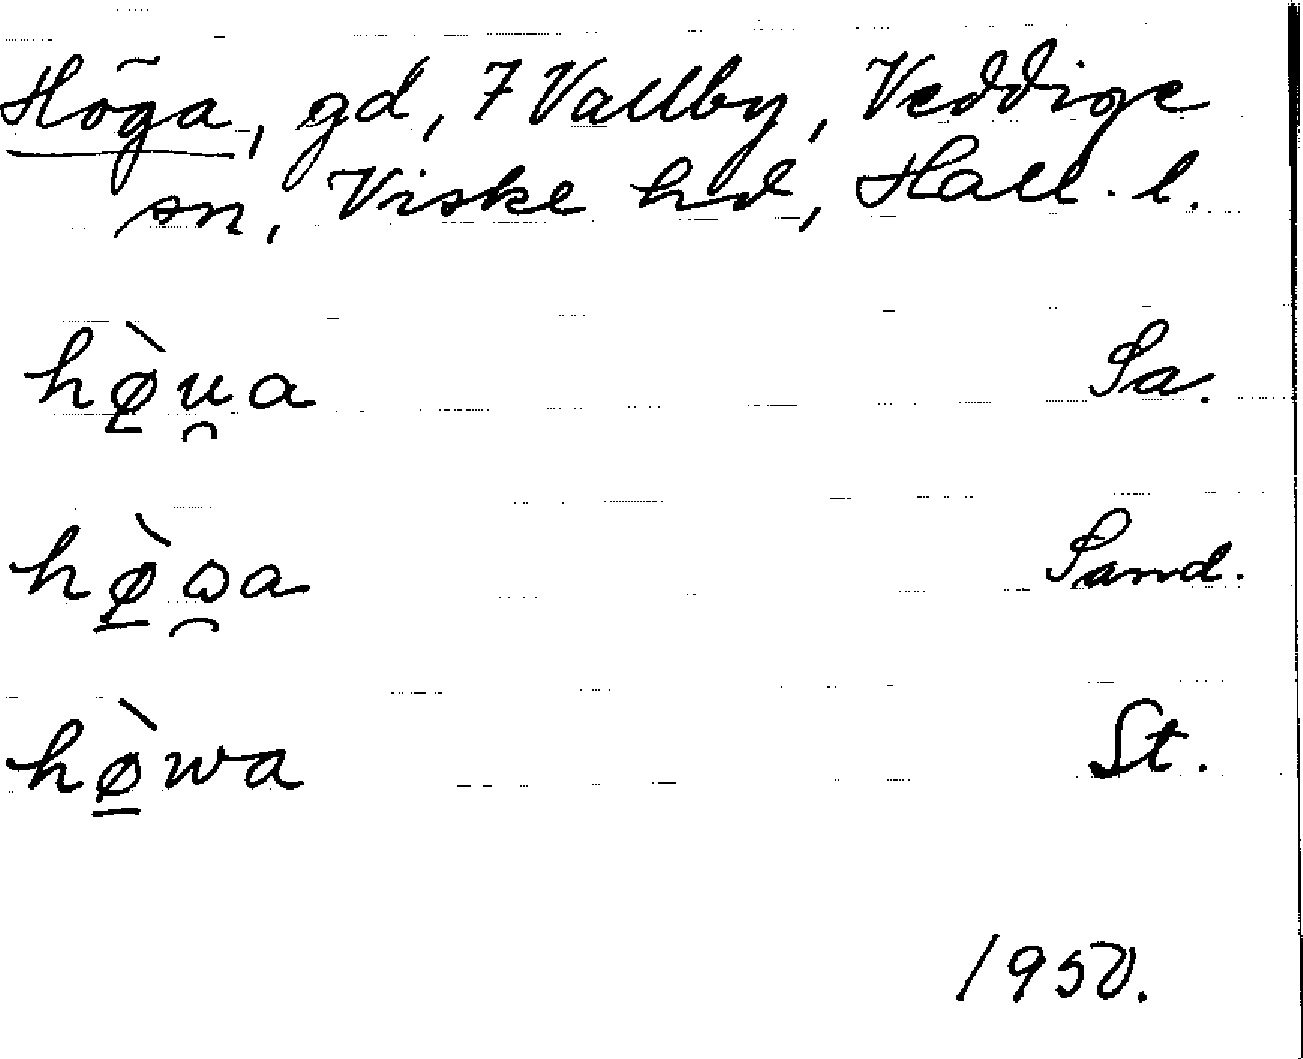 Höga, gd, 7 Vallby, Veddige
sn, Viske hd, Hall. l.
hø̱̀u̯a Sa.
hø̱̀ɷ̯a Sand.
hø̱̀wa St.
1950.